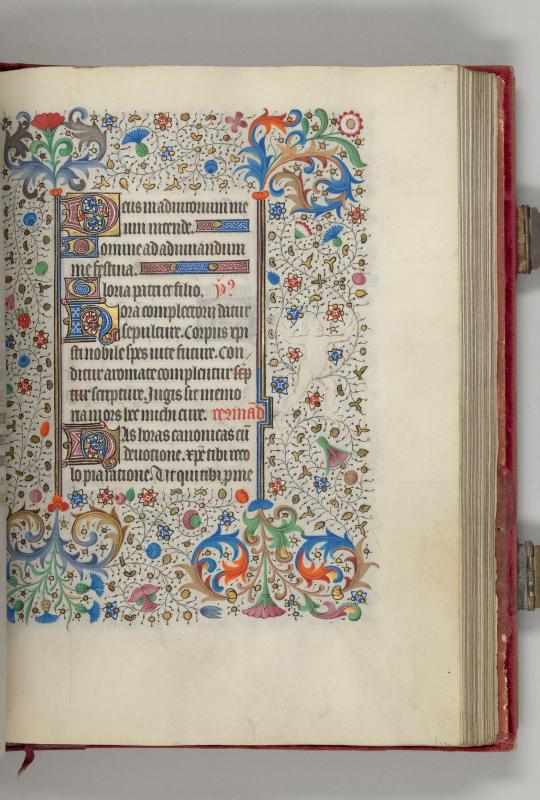 Deus in adiutorium me
um intende.
Domine ad adiuuandum
me festina.
Gloria patri et filio. yꝰ
Hora completorij datur
sepulture. Corpus xpi
nobile spes uite future. Con
ditur aromate complentur scrip
ture scripture. Jugis sit memo
mors hec michi cure.
Has horas canonicas cū
deuotione. xpē tibi reco
lo pia ratione. Ut qui tibi p me